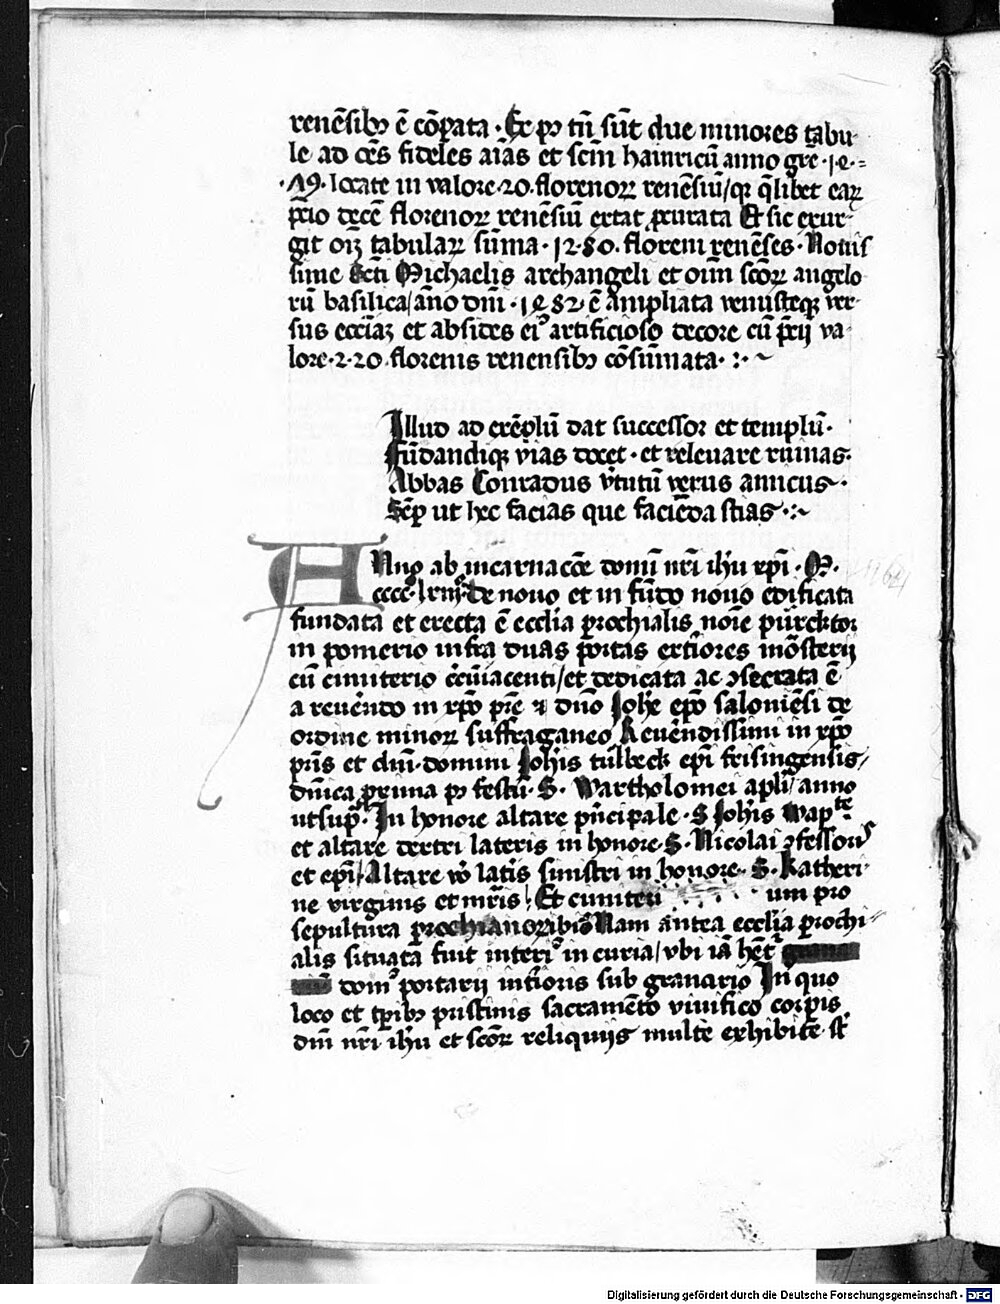 renēsibꝫ ē cōꝑata · Et pꝰ tñ sūt due minores tabu-
le ad oēs fideles aīas et scm̄ hainricū anno gre · 14 ·=
· 79 · locate in valore · 20 · florenoꝝ renēsiū / qꝝ q̄libet eaꝝ
p̄cio decē florenoꝝ renēsiū extat ꝓcurata Et sic exur-
git oīꝫ tabulaꝝ sūma · 1280 · floreni renēses · Novis
sime Scti Michaelis archangeli et oīm scōꝝ angelo
rū basilica / año dnī · 1482 · ē ampliata venusteqꝫ ver-
sus eccīaꝫ et absides eiꝰ artificioso decore cū p̄cij va-
lore · 220 · florenis renensibꝫ cōsūmata · : · ~
Illud ad exēplū dat successor et templū ·
Fūdandiqꝫ vias docet · et relevare ruinas ·
Abbas Conradus v̄tutū verus amicus ·
Sēꝑ ut hec facias que faciēda scias · : ~
Anno ab incarnacōe domī nr̄i ihū xpī · M ·
cccc · De novo et in fūdo novo edificata
fundata et erecta ē ecclīa ꝑrochialis noīe pürcktor
in pomerio infra duas portas exīores mōsterij
cū cimiterio c̄cūiacenti / et dedicata ac ꝯsecrata ē
a revēndo in xp̄o pr̄e ⁊ dn̄o Joh̄e ep̄o saloniēsi de
ordine minoꝝ suffraganeo Revēndissimi in xp̄o
pr̄is et dnī · domini Joh̄is tülbeck ep̄i frisingensis /
dn̄ica ꝓxima pꝰ festū · S · Bartholomei apl̄i / anno
utsupᵃ · In honore altare pn̄cipale · S Joh̄is Bapᵗᵉ
et altare dextri lateris in honore · S · Nicolai ꝯfessoris
et ep̄i / Altare v̄o lat̄is sinistri in honore · S · Katheri-
ne virginis et mr̄is / Et cimiteri . . . . . um pro
sepultura ꝑrochianoribꝰ Nam antea ecclia ꝑrochi-
alis situata fuit interiꝰ in curia / vbi iā hēt
domꝰ portarij inf̄ioris sub granario In quo
loco et tp̄ibꝫ pristinis sacramēto vivifico corpis
dnī nr̄i ihū et scōꝝ reliquijs multe exhibite st̄
Digitalisierung gefördert durch die Deutsche Forschungsgemeinschaft · DFG